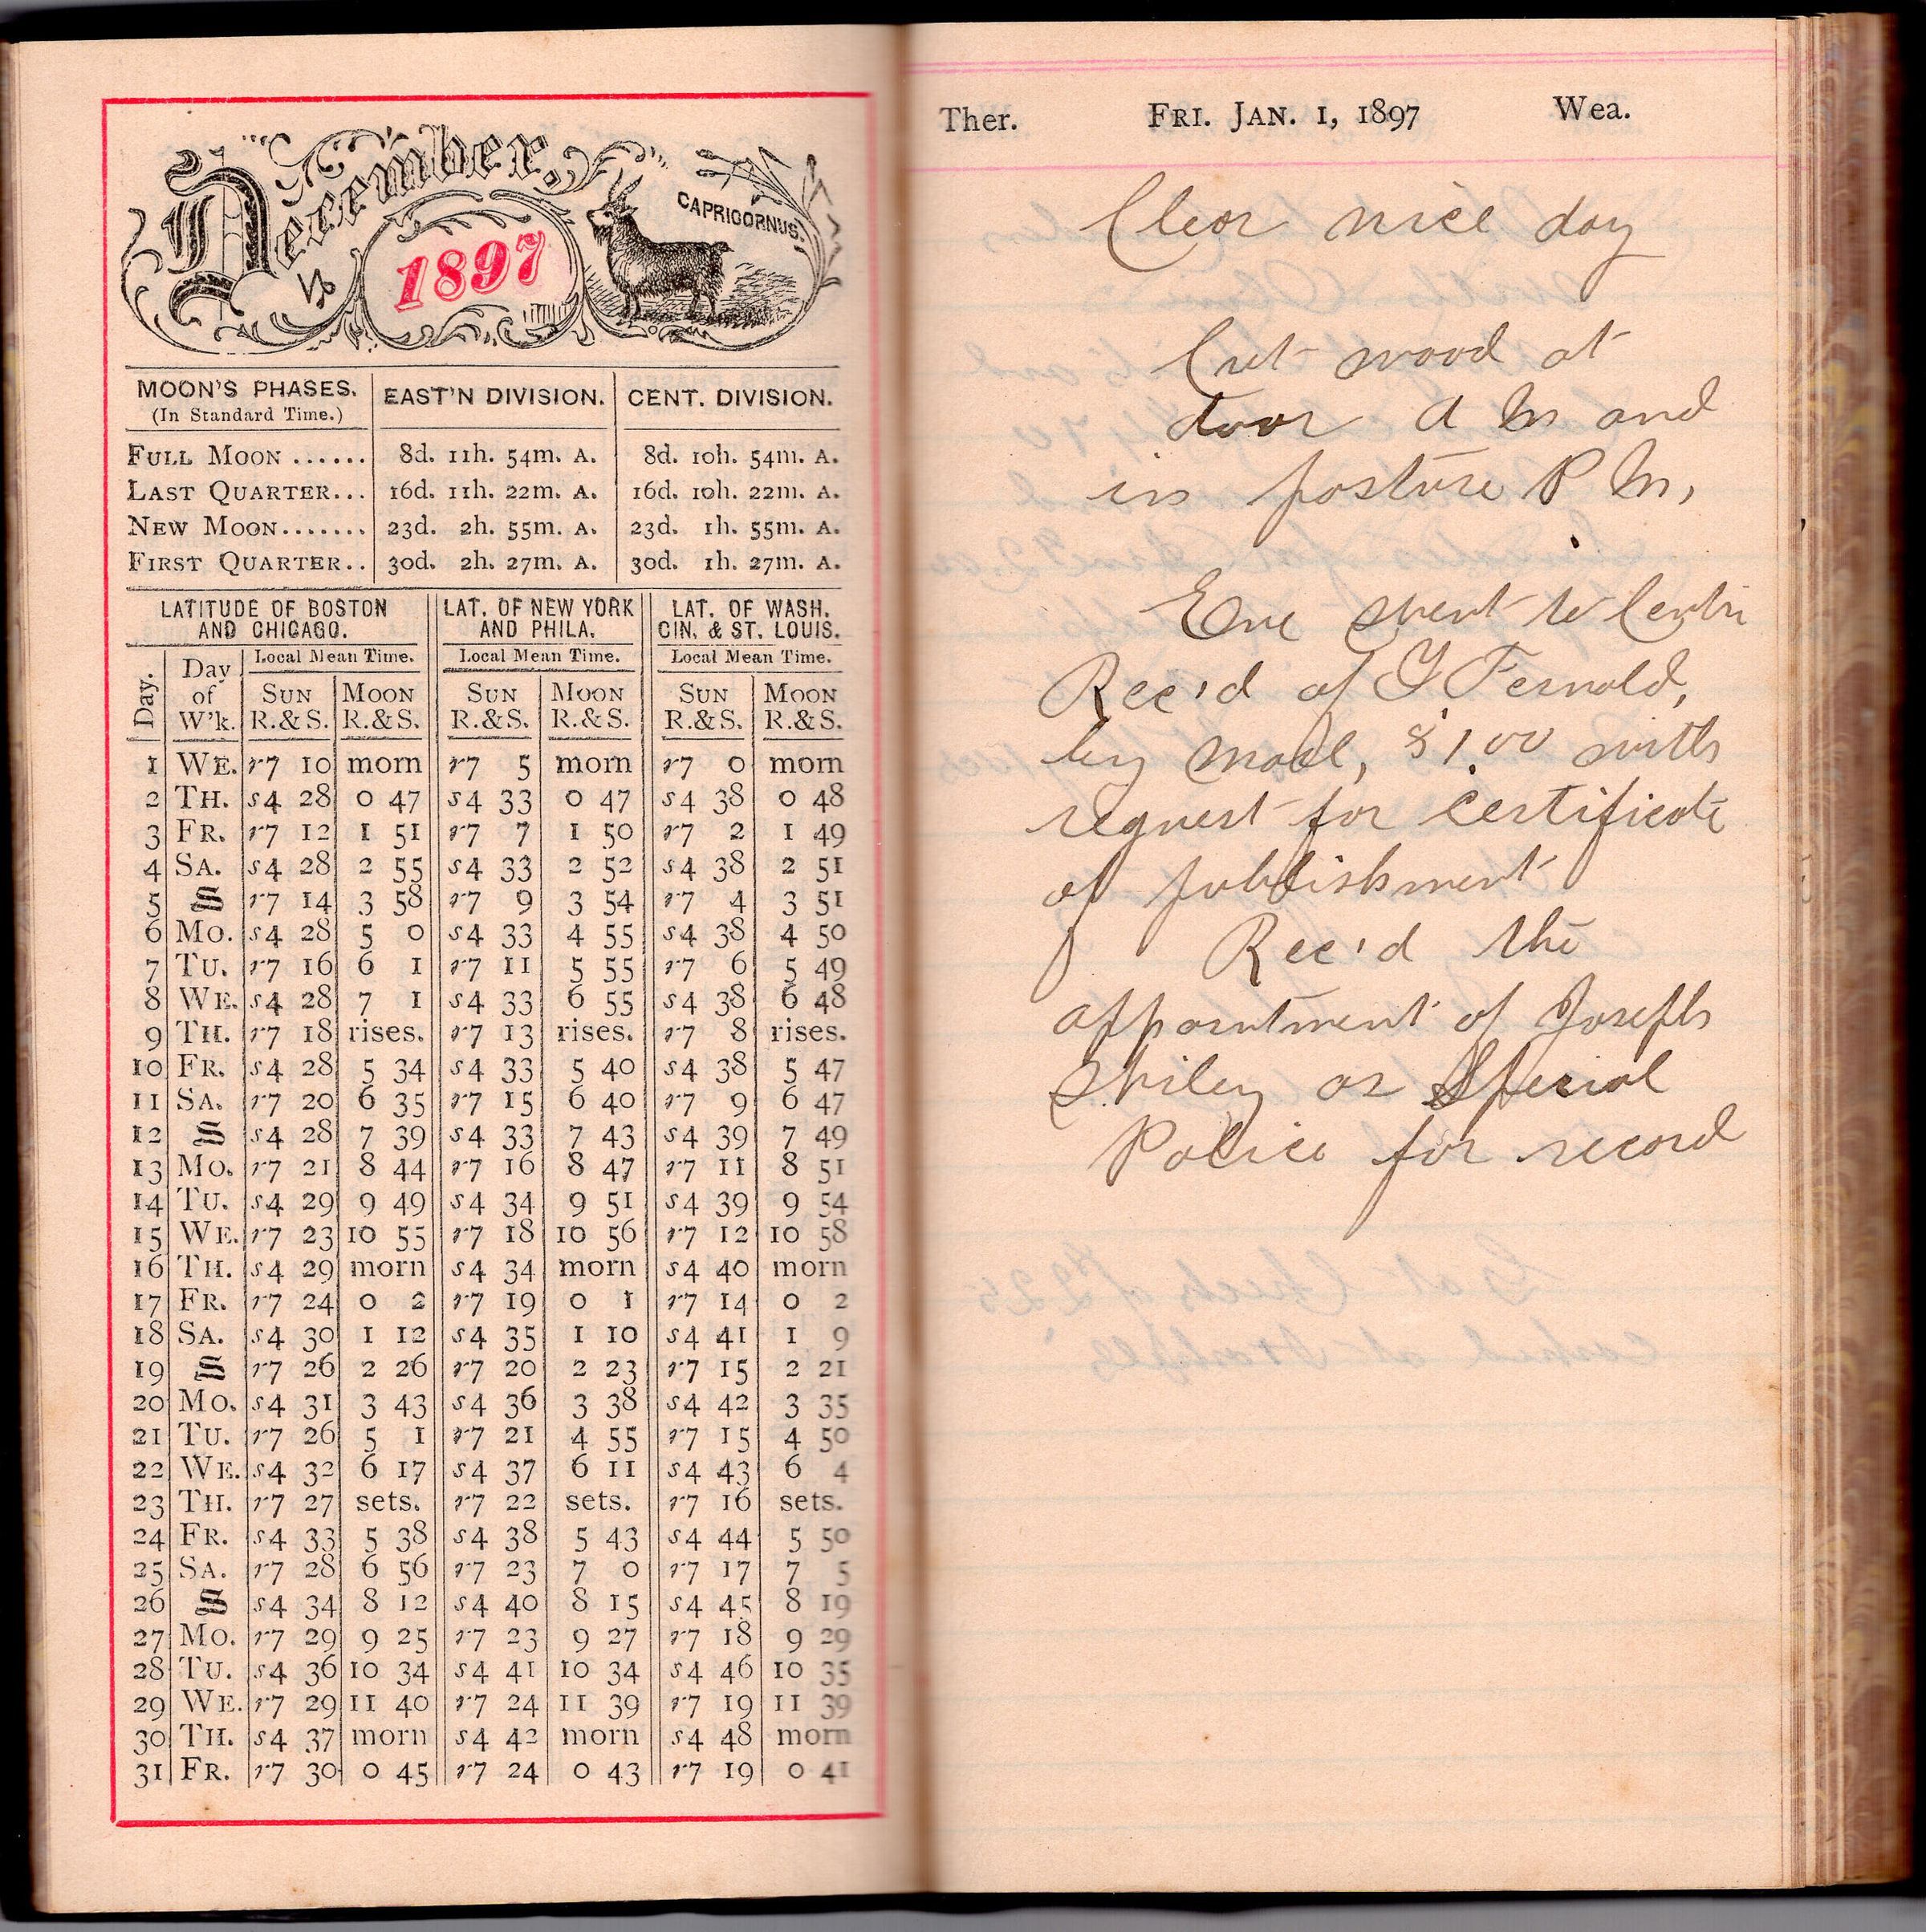 December.
1897
CAPRICORNUS.
MOON'S PHASES. EAST'N DIVISION. CENT. DIVISION.
(In Standard Time.)
FULL MOON ...... 8d. 11h. 54m. A. 8d. 10h. 54m. A.
LAST QUARTER... 16d. 11h. 22m. A. 16d. 10h. 22m. A.
NEW MOON....... 23d. 2h. 55m. A. 23d. 1h. 55m. A.
FIRST QUARTER.. 30d. 2h. 27m. A. 30d. 1h. 27m. A.
LATITUDE OF BOSTON LAT. OF NEW YORK LAT. OF WASH.
AND CHICAGO. AND PHILA. CIN. & ST. LOUIS.
Day. Day of W'k. Local Mean Time. Local Mean Time. Local Mean Time.
SUN MOON SUN MOON SUN MOON
R.&S. R.&S. R.&S. R.&S. R.&S. R.&S.
1 WE. r7 10 morn r7 5 morn r7 0 morn
2 TH. s4 28 0 47 s4 33 0 47 s4 38 0 48
3 FR. r7 12 1 51 r7 7 1 50 r7 2 1 49
4 SA. s4 28 2 55 s4 33 2 52 s4 38 2 51
5 S r7 14 3 58 r7 9 3 54 r7 4 3 51
6 MO. s4 28 5 0 s4 33 4 55 s4 38 4 50
7 TU. r7 16 6 1 r7 11 5 55 r7 6 5 49
8 WE. s4 28 7 1 s4 33 6 55 s4 38 6 48
9 TH. r7 18 rises. r7 13 rises. r7 8 rises.
10 FR. s4 28 5 34 s4 33 5 40 s4 38 5 47
11 SA. r7 20 6 35 r7 15 6 40 r7 9 6 47
12 S s4 28 7 39 s4 33 7 43 s4 39 7 49
13 MO. r7 21 8 44 r7 16 8 47 r7 11 8 51
14 TU. s4 29 9 49 s4 34 9 51 s4 39 9 54
15 WE. r7 23 10 55 r7 18 10 56 r7 12 10 58
16 TH. s4 29 morn s4 34 morn s4 40 morn
17 FR. r7 24 0 2 r7 19 0 1 r7 14 0 2
18 SA. s4 30 1 12 s4 35 1 10 s4 41 1 9
19 S r7 26 2 26 r7 20 2 23 r7 15 2 21
20 MO. s4 31 3 43 s4 36 3 38 s4 42 3 35
21 TU. r7 26 5 1 r7 21 4 55 r7 15 4 50
22 WE. s4 32 6 17 s4 37 6 11 s4 43 6 4
23 TH. r7 27 sets. r7 22 sets. r7 16 sets.
24 FR. s4 33 5 38 s4 38 5 43 s4 44 5 50
25 SA. r7 28 6 56 r7 23 7 0 r7 17 7 5
26 S s4 34 8 12 s4 40 8 15 s4 45 8 19
27 MO. r7 29 9 25 r7 23 9 27 r7 18 9 29
28 TU. s4 36 10 34 s4 41 10 34 s4 46 10 35
29 WE. r7 29 11 40 r7 24 11 39 r7 19 11 39
30 TH. s4 37 morn s4 42 morn s4 48 morn
31 FR. r7 30 0 45 r7 24 0 43 r7 19 0 41
Ther. FRI. JAN. 1, 1897 Wea.
Clear nice day
Cut wood at
door A M and
in pasture P M,
Eve went to Centre
Rec'd of Fernald,
by mail, $1.00 with
request for certificate
of publishment
Rec'd the
appointment of Joseph
Shiley as Special
Police for record